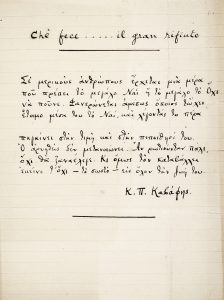 Che fece ..... il gran rifiuto
Σέ μερικούς ἀνθρώπους ἔρχεται μιά μέρα
πού πρέπει τό μεγάλο Ναί ἤ τό μεγάλο τό Ὄχι
νά ποῦνε. Φανερώνεται ἀμέσως ὅποιος τὄχει
ἕτοιμο μέσα του τό Ναί, καί λέγοντάς το πέρα
πηγαίνει στήν τιμή καί στήν πεποίθησί του.
Ὁ ἀρνηθείς δέν μετανοιώνει. Ἄν ρωτιοῦνταν πάλι,
ὄχι θά ξαναέλεγε. Κι ὅμως τόν καταβάλλει
ἐκεῖνο τ' ὄχι — τό σωστό — εἰς ὅλην τήν ζωή του.
Κ. Π. Καβάφης.